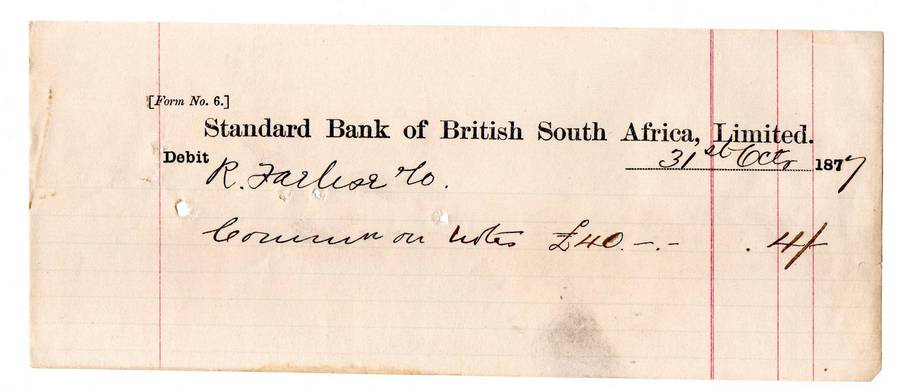 [Form No. 6.]
Standard Bank of British South Africa, Limited.
Debit 31st Octr 1877
R. & Co.
Commn on notes £40.-.- . 4/